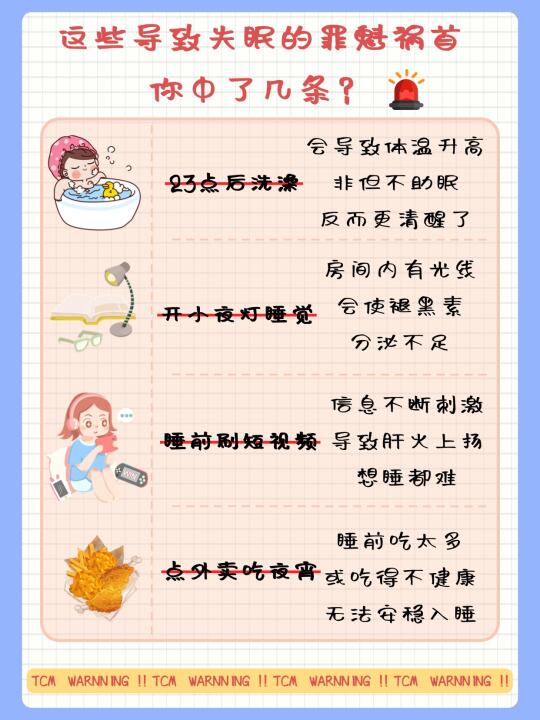 这些导致失眠的罪魁祸首
你中了几条?
23点后洗澡
会导致体温升高
非但不助眠
反而更清醒了
开小夜灯睡觉
房间内有光线
会使褪黑素
分泌不足
睡前刷短视频
信息不断刺激
导致肝火上扬
想睡都难
WIN
点外卖吃夜宵
睡前吃太多
或吃得不健康
无法安稳入睡
TCM WARNNING !! TCM WARNNING !! TCM WARNNING !! TCM WARNNING !!